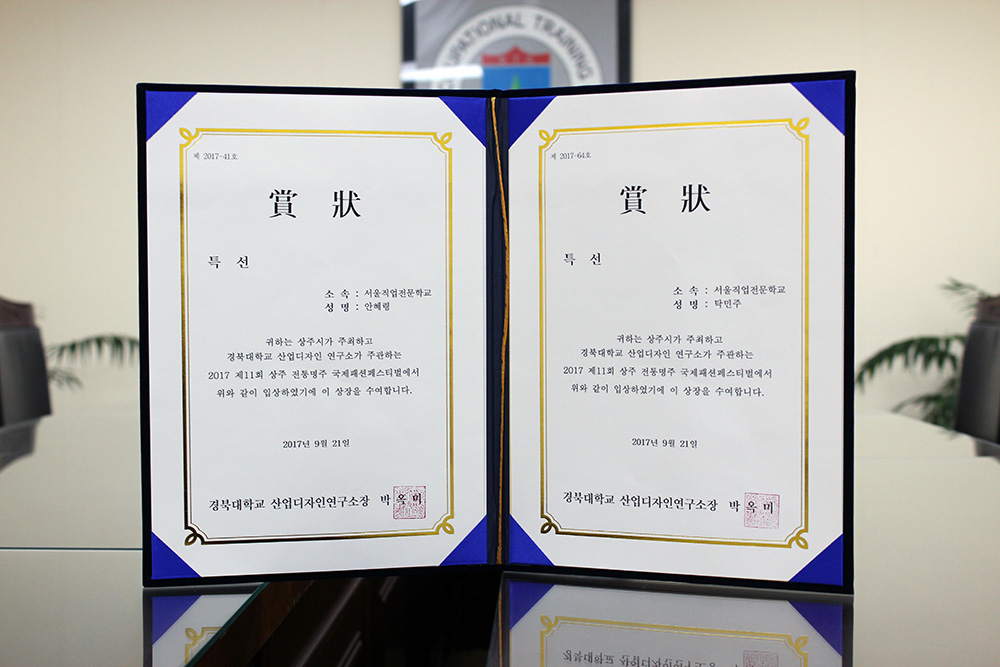 UPATIONAL TRAINING
제 2017-41호
賞 狀
특 선
소 속 : 서울직업전문학교
성 명 : 안혜령
귀하는 상주시가 주최하고
경북대학교 산업디자인 연구소가 주관하는
2017 제11회 상주 전통명주 국제패션페스티벌에서
위와 같이 입상하였기에 이 상장을 수여합니다.
2017년 9월 21일
경북대학교 산업디자인연구소장 박 옥 미
제 2017-64호
賞 狀
특 선
소 속 : 서울직업전문학교
성 명 : 탁민주
귀하는 상주시가 주최하고
경북대학교 산업디자인 연구소가 주관하는
2017 제11회 상주 전통명주 국제패션페스티벌에서
위와 같이 입상하였기에 이 상장을 수여합니다.
2017년 9월 21일
경북대학교 산업디자인연구소장 박 옥 미